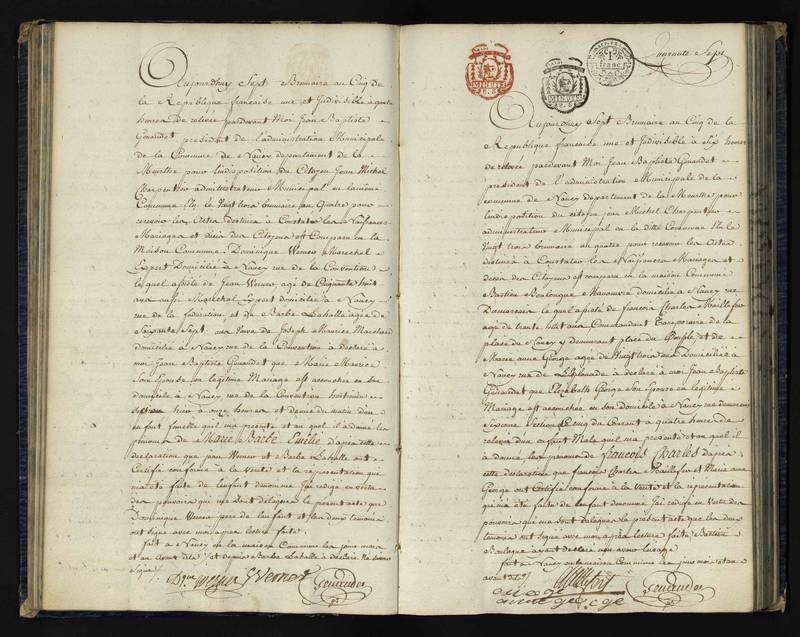 Aujourdhuy Sept Brumaire an Cinq de
la Republique francaise une et Indivisible à quatre
heures De relevée pardevant Moi Jean Baptiste
Genaudet president de l'administration Municipale
de la Commune De Nancy departement de la
Meurthe pour lindisposition du Citoyen Jean Michel
Charpentier administrateur Municipal en la même
Commune Elu le Vingt trois brumaire an Quatre pour
recevoir les Actes destinés à Constater les Naissances
Mariages et décès des Citoyens est Comparu en la
Maison Commune, Dominique Werner Marechal
Expert Domicilié à Nancy rue de la Convention
lequel assisté de Jean Werner agé de Cinquante huit
ans aussi Marechal Expert domicilié à Nancy
rue de la fédération et de Barbe Laballe agée de
Soixante Sept ans Veuve de Joseph Maurice Marchand
domiciliée à Nancy rue de la Convention à déclaré à
moi Jean Baptiste Genaudet que Marie Maurice
Son Epouse en légitime Mariage est accouchée en son
domicile à Nancy rue de la Convention huitieme
Section hier à onze heures et demie du matin d'un
enfant femelle qui ma présenté et au quel il à donné les
prenoms de Marie Barbe Emélie d'après cette
déclaration que Jean Werner et Barbe Laballe ont
Certifié conforme à la Verité et la représentation qui
m'a été faite de l'enfant dénommé jai rédigé en vertu
des pouvoirs qui me sont délégués le présent acte que
Dominique Werner pere de l'enfant et les deux temoins
ont signé avec moi, après lecture faite.
fait à Nancy en la maison Commune les jour mois
et an avant dits et depuis Barbe Laballe a déclaré ne savoir
signer
Dque Werner J Verner Genaudet
Quarante Sept
MINUTE
MINUTE
1 franc
Aujourdhuy Sept Brumaire an Cinq de la
Republique francaise une et Indivisible à Six heures
de relevée pardevant Moi Jean Baptiste Genaudet
president de l'administration Municipale de la
commune de Nancy département de la Meurthe pour
lindisposition du citoyen jean Michel Charpentier
administrateur Municipal en la ditte Commune Elu le
Vingt trois brumaire an quatre pour recevoir les Actes
destinés à Constater les Naissances Mariages et
décès des Citoyens est comparu en la maison Commune
Bastien Boulongne Manœuvre domicilié à Nancy rue
lequel assisté de francois Charles
agé de trente huit ans Commandant temporaire de la
place de Nancy y demeurant place du Peuple, et de
Marie anne George agée de Vingt trois ans Domiciliée à
Nancy rue de L'Esplanade à déclaré à moi Jean Baptiste
Genaudet que Elizabeth George Son Epouse en légitime
Mariage est accouchée en son domicile à Nancy rue
Sixieme Section le Cinq du Courant à quatre heures de
relevée d'un enfant Male qui ma présenté et au quel il
à donné les prenoms de francois Charles d'après
cette déclaration que francois Charles et Marie anne
George ont Certifié conforme à la Verité et la représentation
qui ma été faite de lenfant dénommé Jai rédigé en Vertu des
pouvoirs qui me sont délégués le présent acte que les deux
temoins ont signé avec moi après lecture faite Bastien
Boulongne ayant déclaré n'en avoir l'usage
fait à Nancy en la maison Commune les jour mois et an
avant dits
Genaudet